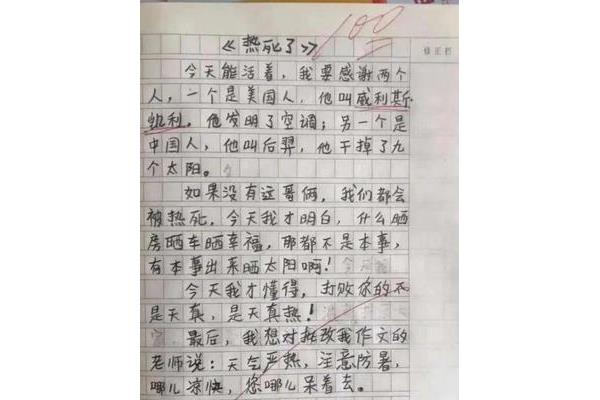 100
《热死了》
修正栏
今天能活着，我要感谢两个
人，一个是美国人，他叫威利斯
凯利，他发明了空调；另一个是
中国人，他叫后羿，他干掉了九
个太阳。
如果没有这哥俩，我们都会
被热死，今天我才明白，什么晒
房晒车晒幸福，那都不是本事，
有本事出来晒太阳啊！
今天我才懂得，打败你的不
是天真，是天真热！
最后，我想对批改我作文的
老师说：天气严热，注意防暑，
哪儿凉快，您哪儿呆着去。